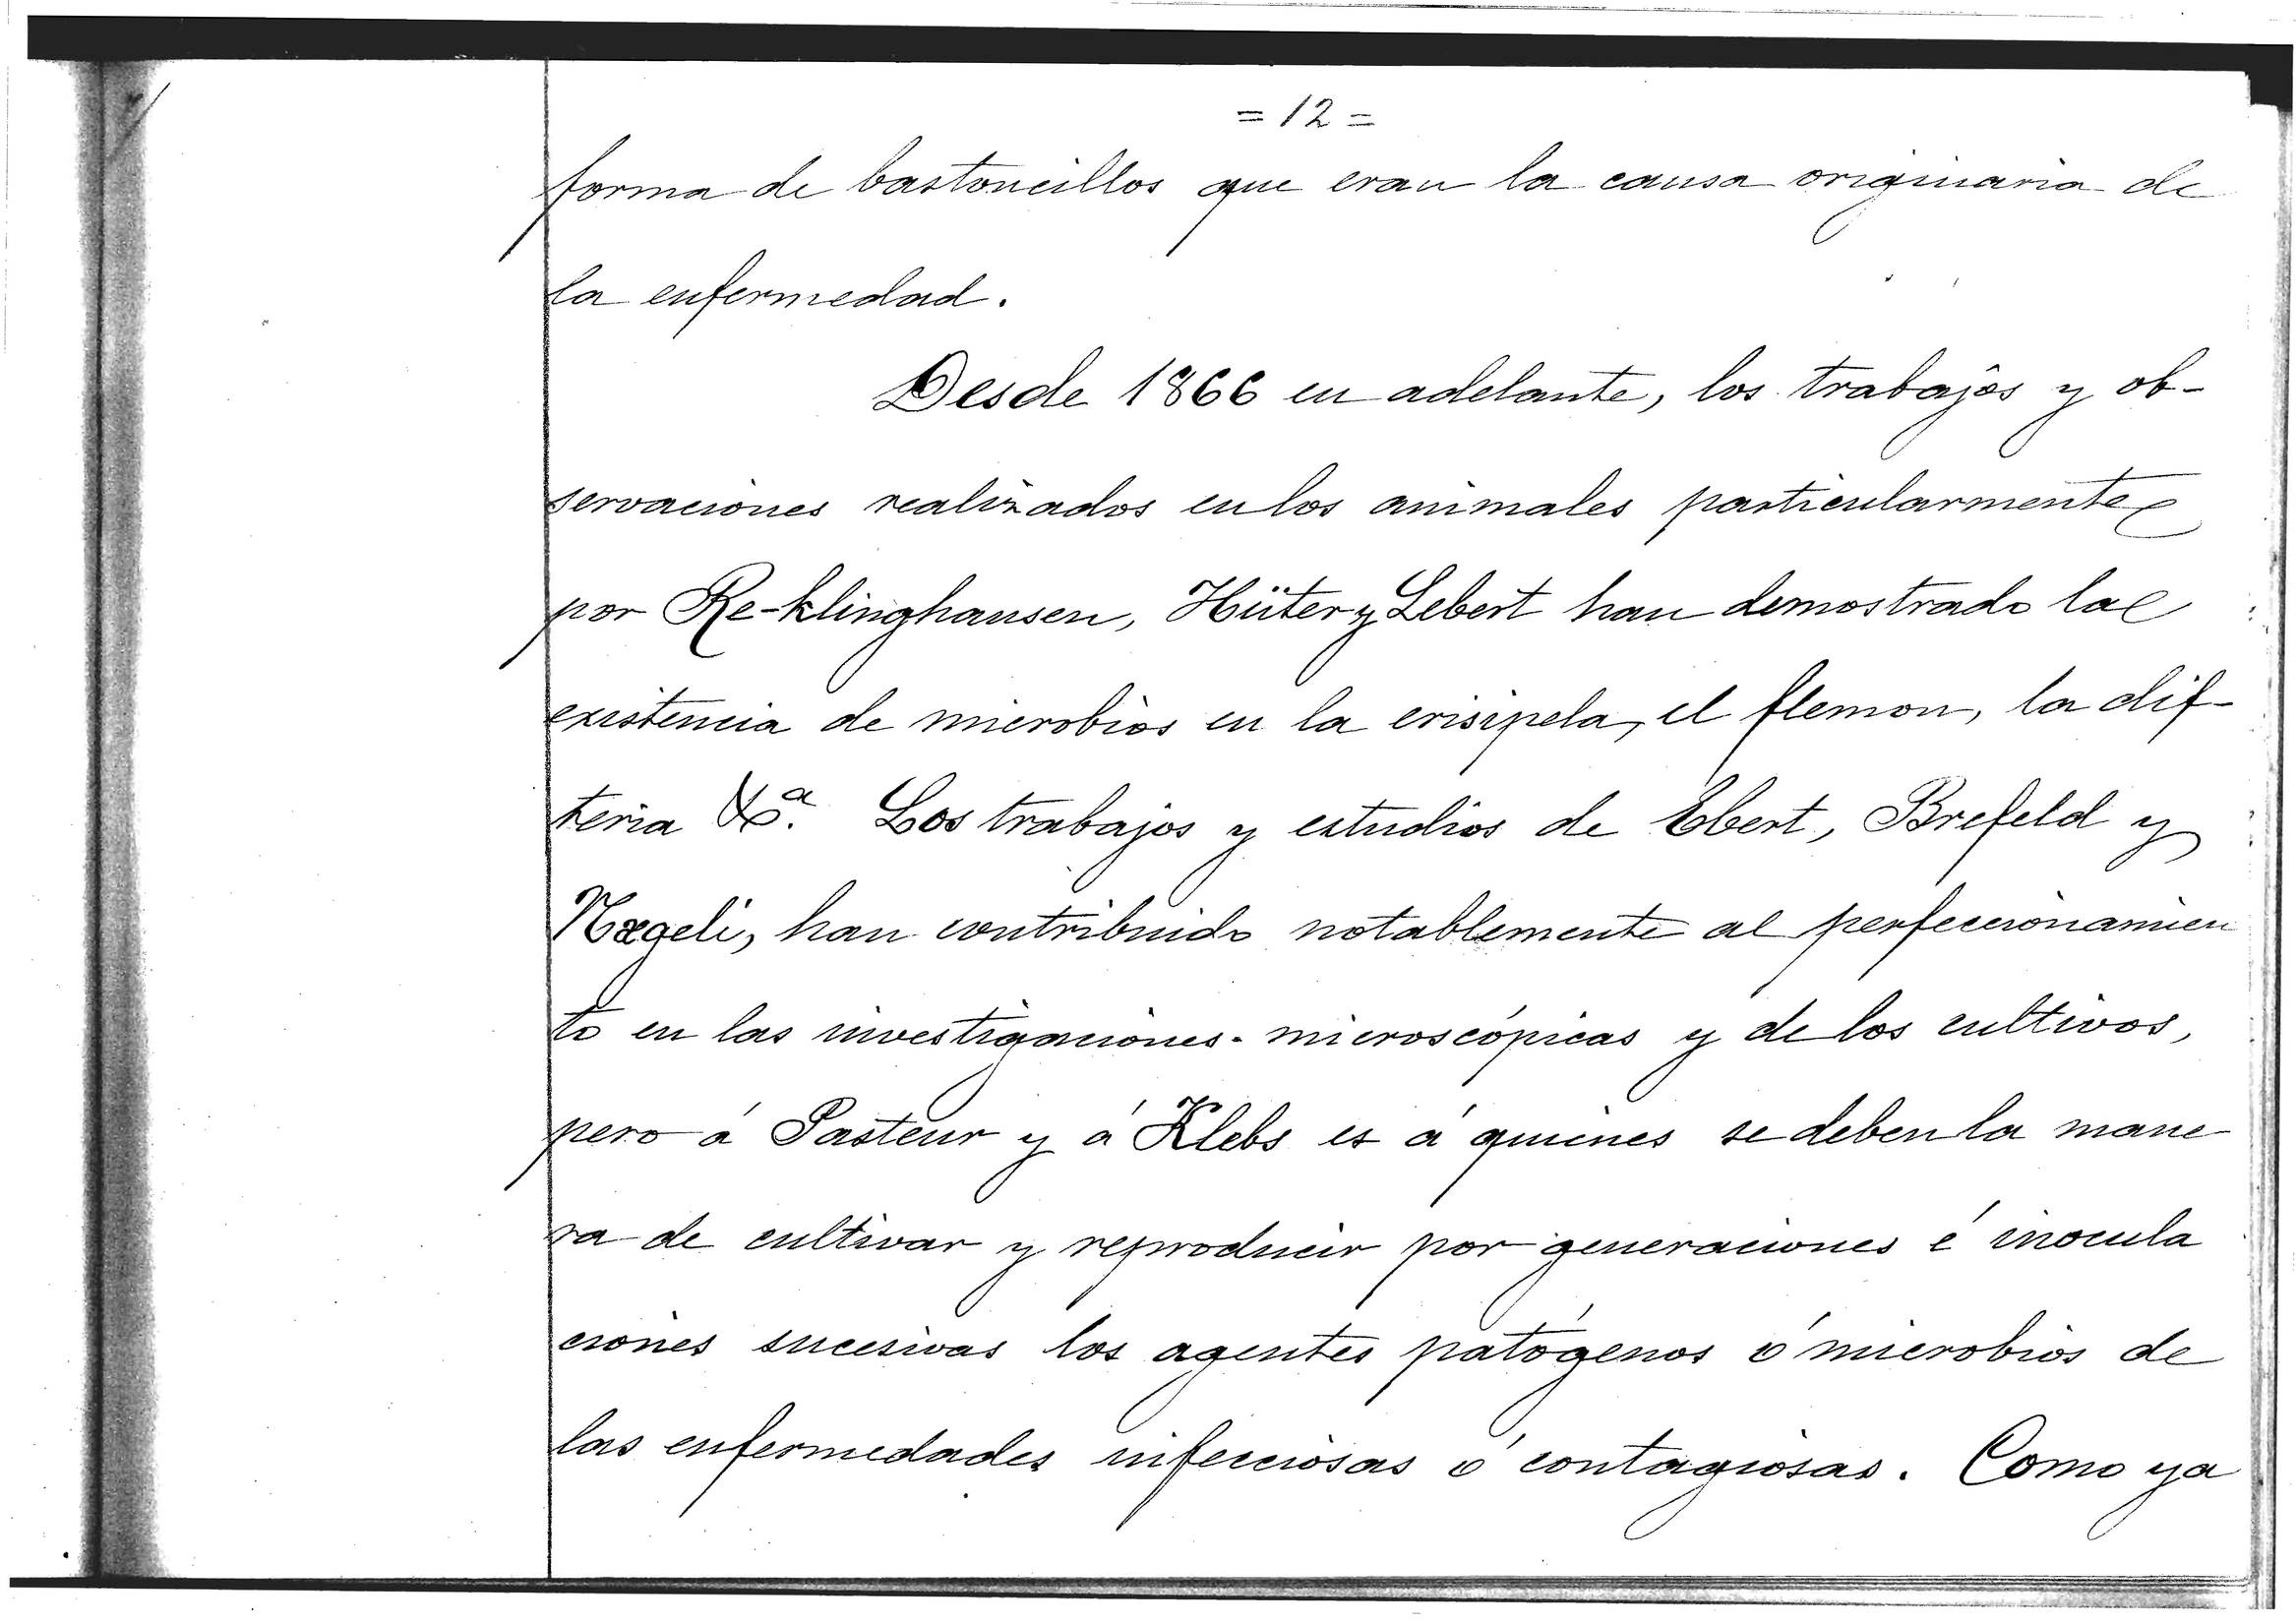 = 12 =
forma de bastoncillos que eran la causa originaria de
la enfermedad.
Desde 1866 en adelante, los trabajos y ob-
servaciones realizados en los animales particularmente
por Re-klinghausen, Hüter y Lebert han demostrado la
existencia de microbios en la erisipela, el flemon, la dif-
teria &ª. Los trabajos y estudios de Ebert, Brefeld y
Nægeli, han contribuido notablemente al perfeccionamien
to en las investigaciones microscópicas y de los cultivos,
pero á Pasteur y á Klebs es á quienes se deben la mane
ra de cultivar y reproducir por generaciones é inocula
ciones sucesivas los agentes patógenos ó microbios de
las enfermedades infecciosas ó contagiosas. Como ya